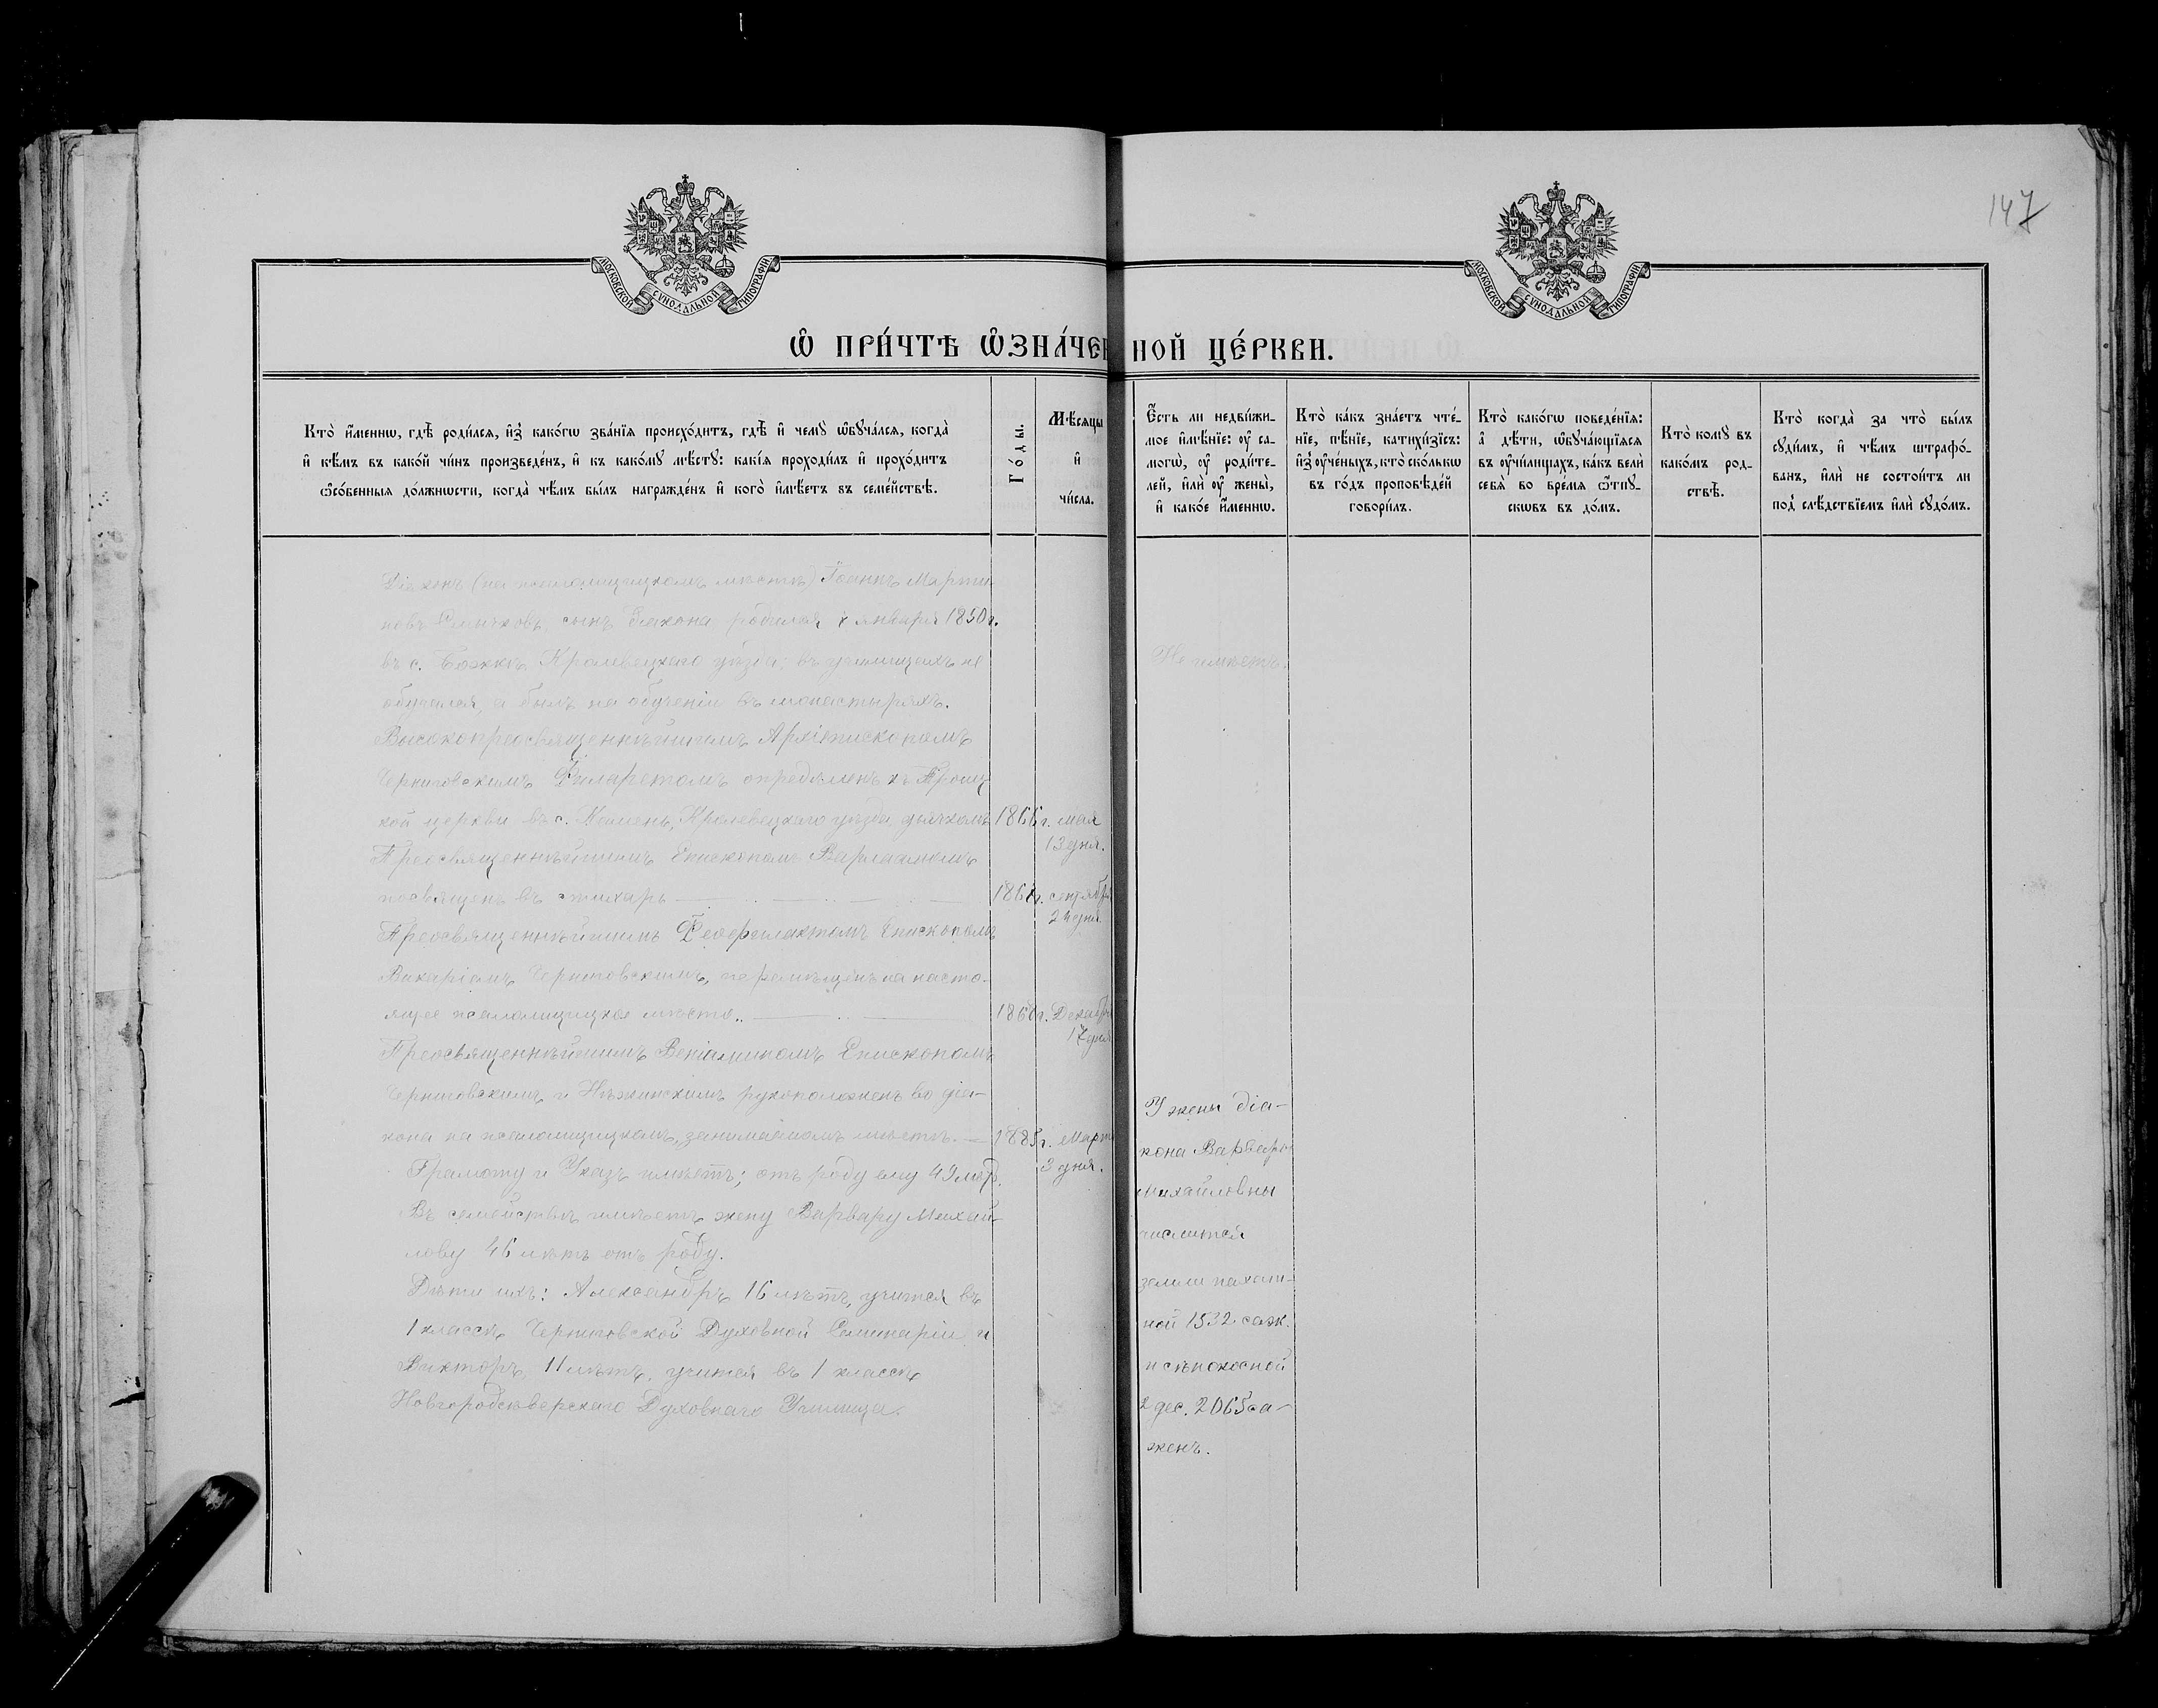 147
МОСКОВСКОЙ СѴНОДАЛЬНОЙ ТИПОГРАФІИ
МОСКОВСКОЙ СѴНОДАЛЬНОЙ ТИПОГРАФІИ
Ѽ ПРИ́ЧТѢ Ѽ̓ЗНА́ЧЕННОЙ ЦЕ́РКВИ.
Кто̀ и҆́меннѡ, гдѣ̀ роди́лся, и҆з̾ како́гѡ зва́нїѧ происхо́дитъ, гдѣ̀ и҆ чемꙋ̀ ѡ҆бꙋча́лся, когда̀
и҆ кѣ́мъ въ како́й чи́нъ произведе́нъ, и҆ къ како́мꙋ мѣ́стꙋ: какі́ѧ проходи́лъ и҆ прохо́дитъ
ѻ҆со́бенныѧ до́лжности, когда̀ чѣ́мъ бы́лъ награжде́нъ и҆ кого̀ и҆мѣ́етъ въ семе́йствѣ.
Го́ды.
Мѣ́сяцы
и҆
чи́сла.
Е҆́сть ли недви́жи-
мое и҆мѣ́нїе: ᲂу҆ са-
могѡ̀, ᲂу҆ роди́те-
лей, и҆лѝ ᲂу҆ жены̀,
и҆ како́е и҆́меннѡ.
Кто̀ ка́къ зна́етъ чте́-
нїе, пѣ́нїе, катихи́зїсъ:
и҆з̾ ᲂу҆че́ныхъ, кто̀ ско́лькѡ
въ го́дъ проповѣ́дей
говори́лъ.
Кто̀ како́гѡ поведе́нїѧ:
а҆ дѣ́ти, ѡ҆бꙋча́ющїѧсѧ
въ ᲂу҆чи́лищахъ, ка́къ велѝ
себѧ̀ во вре́мѧ ѿпꙋ-
скѡвъ въ до́мъ.
Кто̀ комꙋ̀ въ
како́мъ род-
ствѣ̀.
Кто̀ когда̀ за что̀ бы́лъ
сꙋди́мъ, и҆ чѣ́мъ штрафо́-
ванъ, и҆лѝ не состои́тъ ли
под̾ слѣ́дствїемъ и҆лѝ сꙋдо́мъ.
Діаконъ (на псаломщицкомъ мѣстѣ) Іоаннъ Марти-
новъ сынъ діакона родился января 1850г.
въ с. Кролевецкаго уѣзда; въ училищахъ не
обучался, а былъ на обученіи въ монастыряхъ.
Высокопреосвященнѣйшимъ Архіепископомъ
Черниговскимъ Филаретомъ опредѣленъ къ Троиц-
кой церкви въ с. Камень, Кролевецкаго уѣзда, дьячкомъ 1866 г. мая
13 дня.
Преосвященнѣйшимъ Епископомъ Варлаамомъ
посвященъ въ стихарь сентября
24 дня.
Преосвященнѣйшимъ Ѳеофилактомъ Епископомъ
Викаріемъ Черниговскимъ, перемѣщенъ на насто-
ящее псаломщицкое мѣсто. Декабря
17 дня
Преосвященнѣйшимъ Веніаминомъ Епископомъ
Черниговскимъ и Нѣжинскимъ рукоположенъ во діа-
кона на псаломщицкомъ, занимаемомъ мѣстѣ. 1885г. Марта
3 дня.
Грамоту и Указъ имѣетъ; отъ роду ему
Въ семействѣ имѣетъ жену Варвару Михай-
лову 46 лѣтъ отъ роду.
Дѣти ихъ: Александръ 16 лѣтъ, учится въ
1 классѣ Черниговской Духовной Семинаріи и
Викторъ, 11 лѣтъ, учится въ 1 классѣ
Новгородсѣверскаго Духовнаго Училища.
Не имѣетъ.
У жены діа-
кона Варвары
Михайловны
числится
земли пахат-
ной 1532 саж.
и сѣнокосной
2 дес. 2065 са-
женъ.